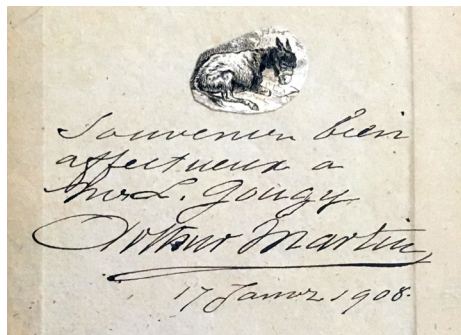 Souvenir bien
affectueux a
Mr L. Gougy
Arthur Martin
17 Janvr 1908.